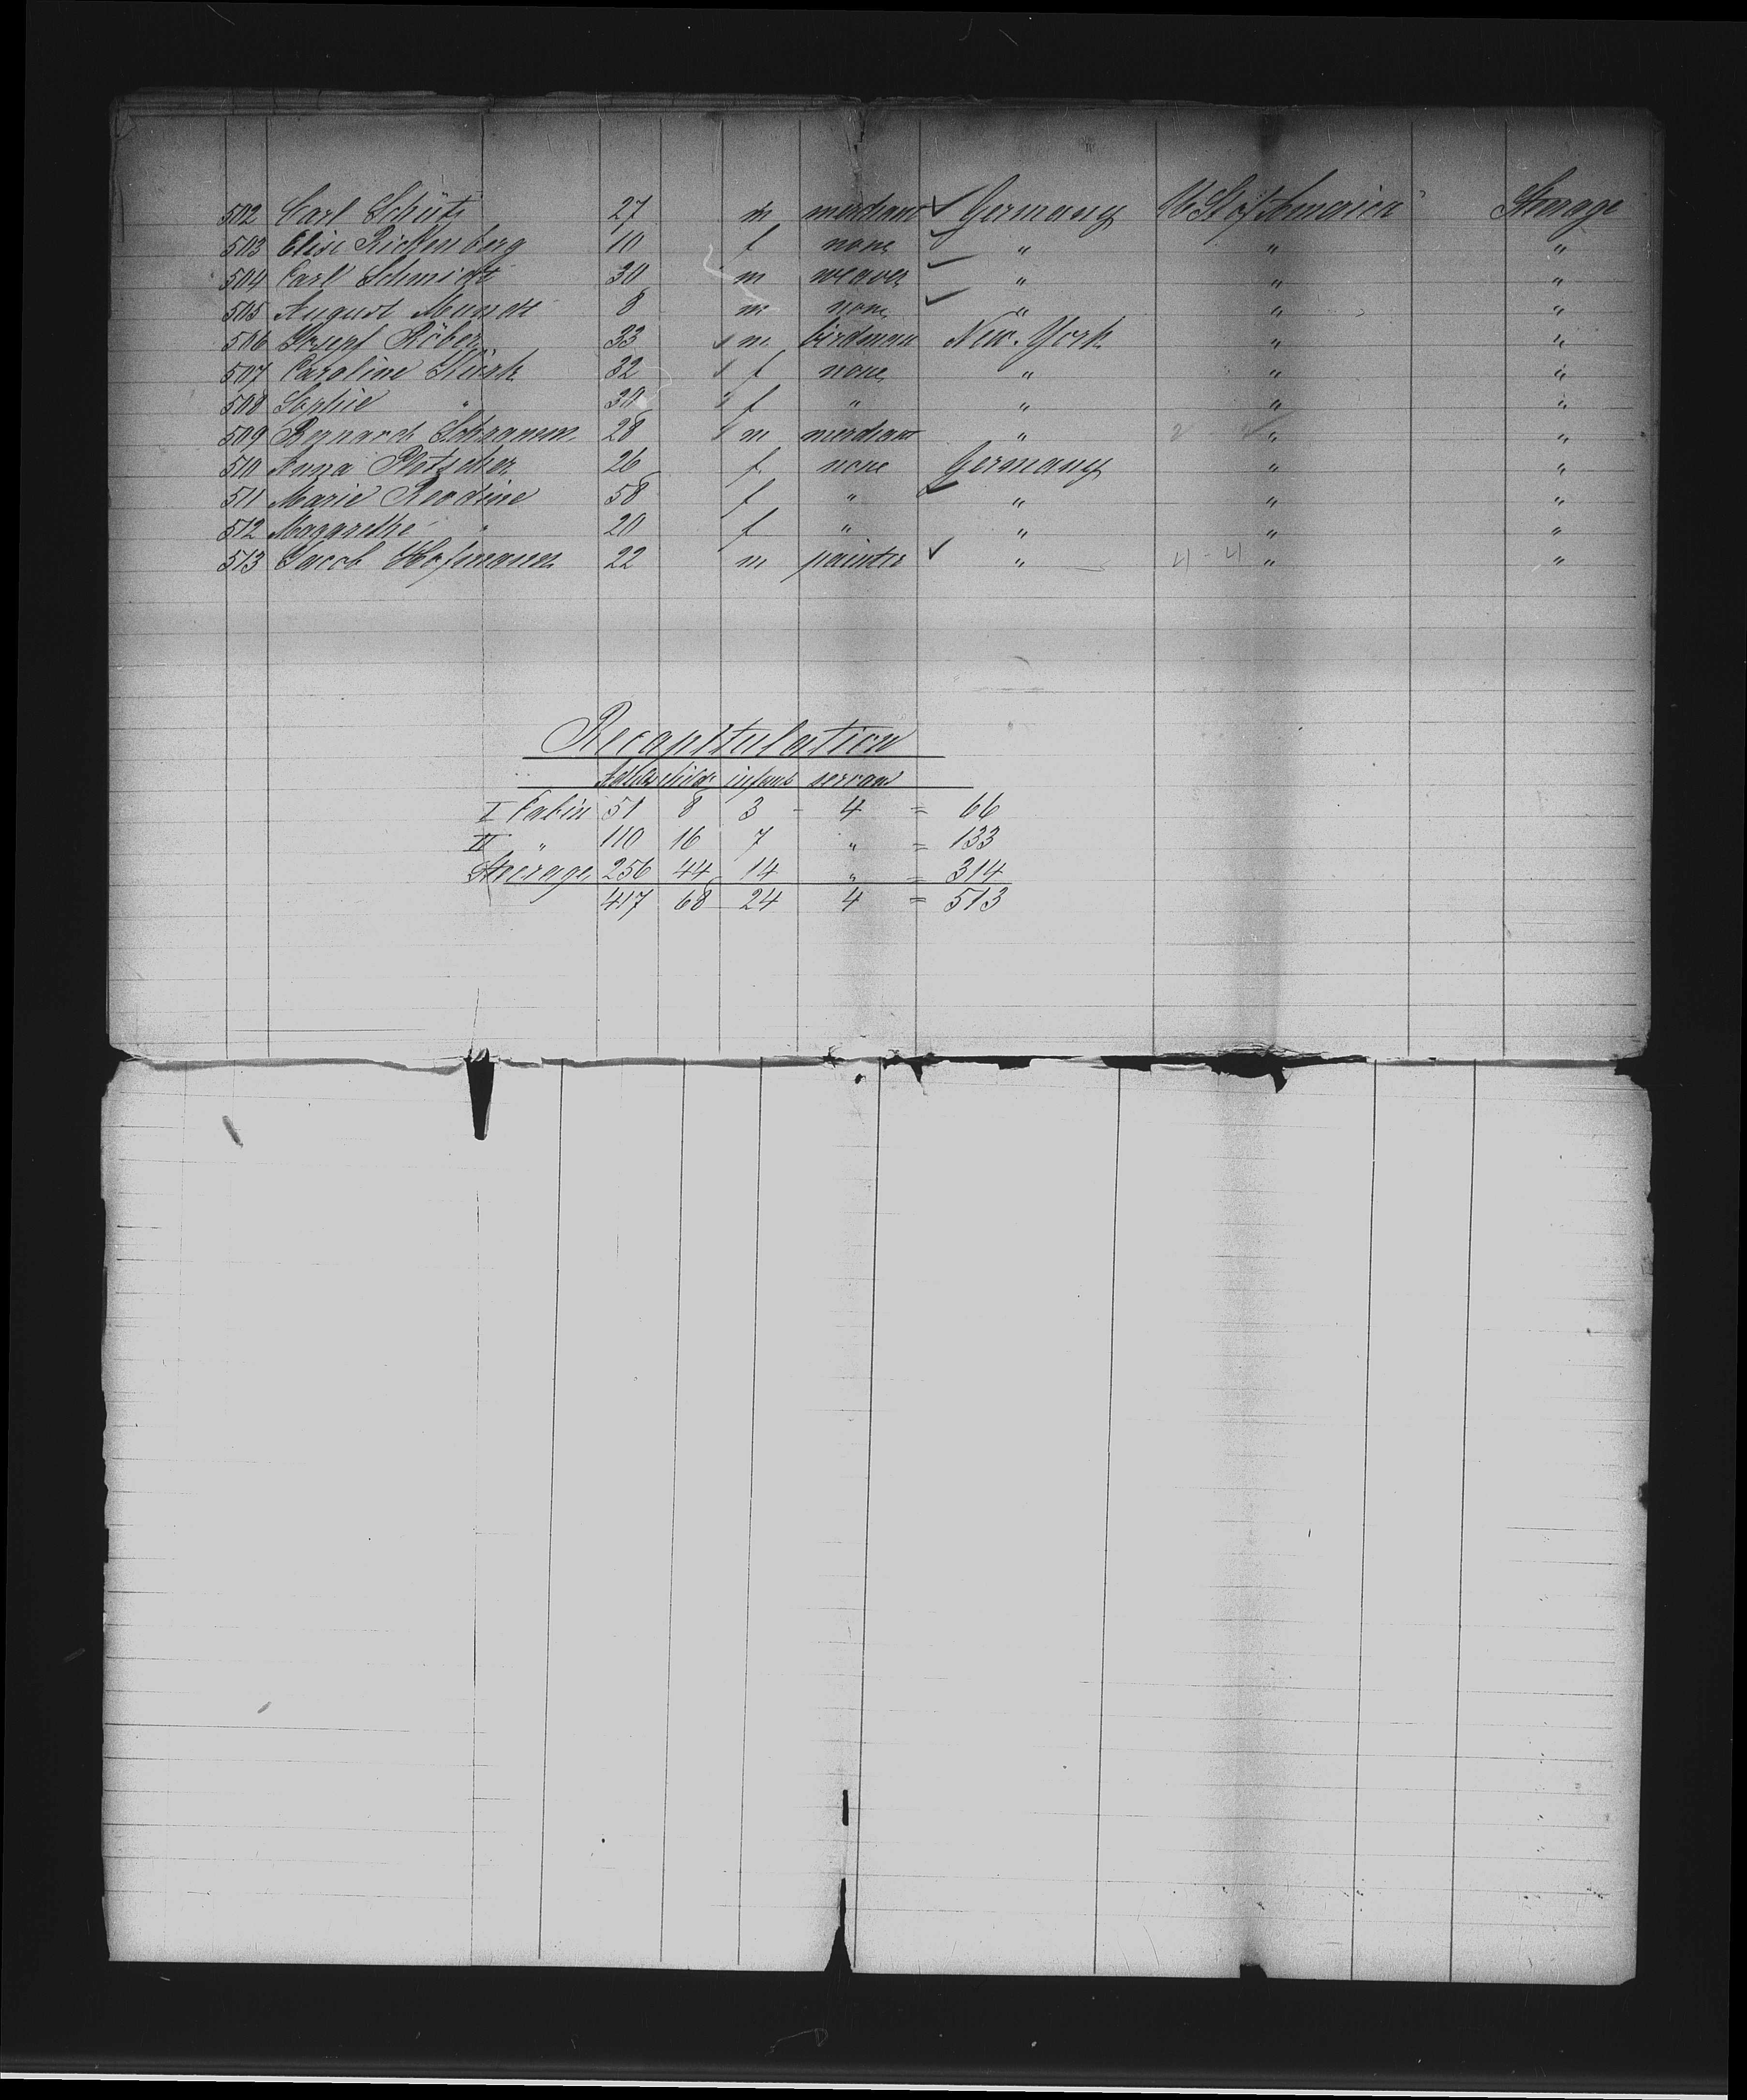 502 Carl Schütz 27 m merchant ✓ Germany U St of America Sterage
503 Elise Rickenberg 10 f none ✓ " " "
504 Carl Schmidt 30 m weaver ✓ " " "
505 August Mundt 8 m none ✓ " " "
506 Josepf Röber 33 m birdman New-York " "
507 Caroline 32 f none " " "
508 Sophie " 30 f " " " "
509 Bernard Schramm 28 m merchant " " "
510 Anna Pletscher 26 f none Germany " "
511 Marie 58 f " ✓ " " "
512 Maggrethe " 20 f " " " "
513 Jacob Hofmann 22 m painter ✓ " 4-4 " "
Recapitulation
childr infants servant
I Cabin 51 8 3 - 4 = 66
II " 110 16 7 " = 133
Steerage 256 44 14 " = 314
417 68 24 4 = 513